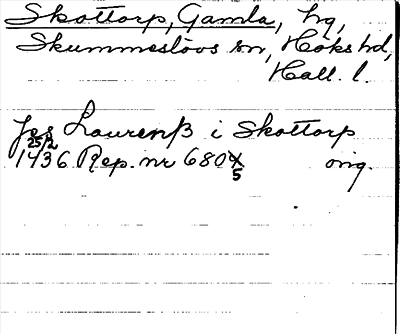 Skottorp, Gamla, hg,
Skummeslövs sn, Höks hd,
Hall. l.
Jes Laurenß i Skottorp
25/2
1436 Rep. nr 6805 orig.